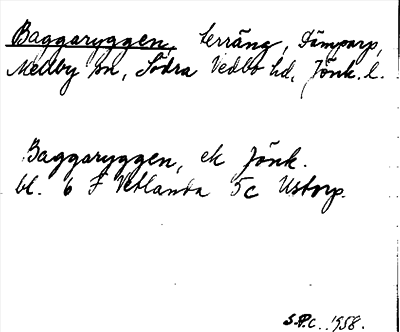 Baggaryggen, terräng, Fämparp,
Mellby sn, Södra Vedbo hd, Jönk. l.
Baggaryggen, ek Jönk.
bl. 6 F Vetlanda 5c Ustorp.
S.P.c. 1958.